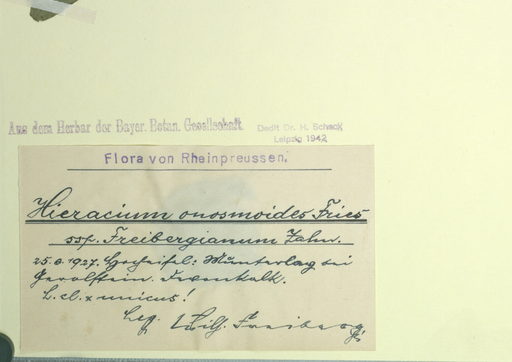 Aus dem Herbar der Bayer. Botan. Gesellschaft.
Dedit Dr. H. Schack
Leipzig 1942
Flora von Rheinpreussen.
Hieracium onosmoides Fries
ssp. Freibergianum Zahn.
25.6.1927. Hocheifel: Munterlay bei
Gerolstein. Devonkalk.
L. cl. x unicus!
Leg. Wilh. Freiberg